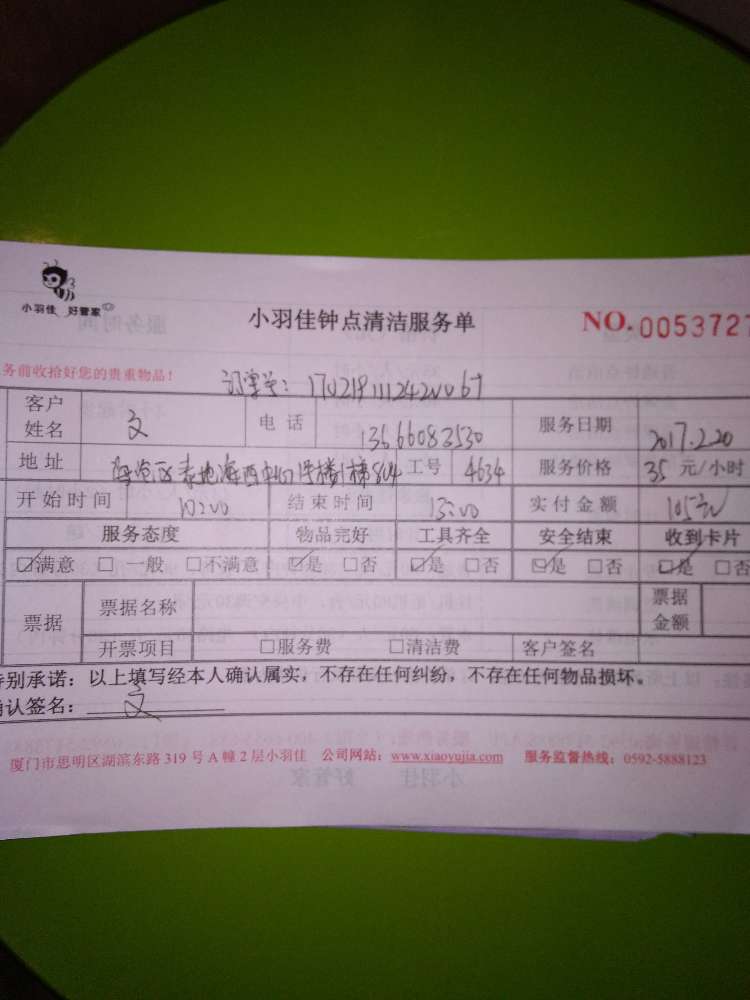 小羽佳 好管家
小羽佳钟点清洁服务单
NO.0053727
务前收拾好您的贵重物品!
订单号:
客户姓名 文 电话 13566083530 服务日期 2017.2.20
地址 4634 工号 服务价格 35 元/小时
开始时间 10:00 结束时间 13:00 实付金额 105元
服务态度 物品完好 工具齐全 安全结束 收到卡片
☑满意 □一般 □不满意 ☑是 □否 ☑是 □否 ☑是 □否 ☑是 □否
票据 票据名称 票据金额
开票项目 □服务费 □清洁费 客户签名
特别承诺:以上填写经本人确认属实,不存在任何纠纷,不存在任何物品损坏。
确认签名: 文
厦门市思明区湖滨东路 319 号 A 幢 2 层小羽佳 公司网站:www.xiaoyujia.com 服务监督热线:0592-5888123